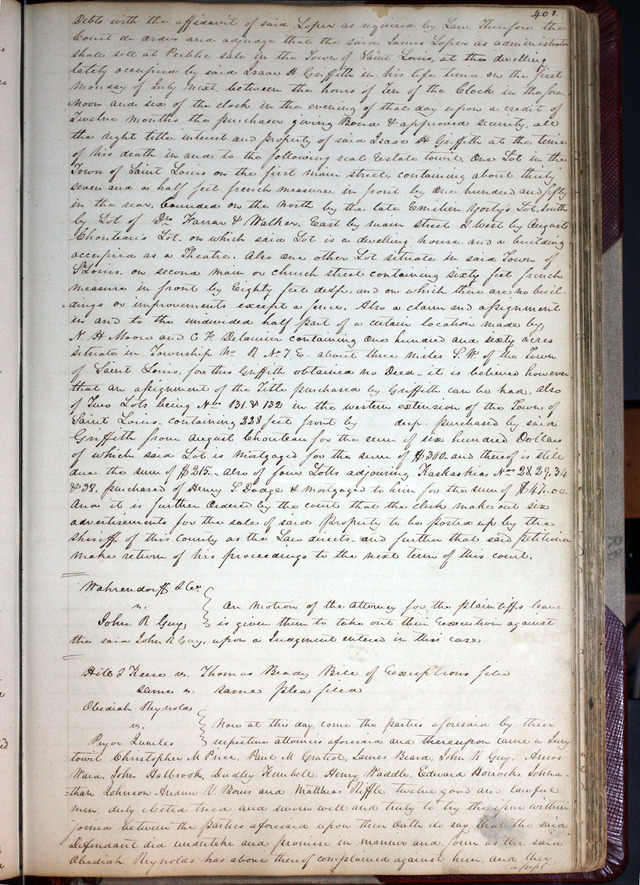 401.
Debts with the affidavit of said Loper as required by Law. Therefore the
Court do order and adjudge that the said James Loper as administrator
shall sell at Public sale in the Town of Saint Louis, at the dwelling
lately occupied by said Isaac H Griffith in his life time on the first
Monday of July next, between the hours of ten of the Clock in the fore
noon and six of the clock in the evening of that day upon a credit of
Twelve months the purchaser giving Bond & approved security, all
the right title interest and property of said Isaac H Griffith at the time
of his death in and to the following real Estate towit. One Lot in the
Town of Saint Louis on the first main street, containing about thirty
seven and a half feet french measure in front by One hundred and fifty
in the rear, bounded on the North by the late Emilien Yosty's Lot, South
by Lot of Drs Farrar & Walker, East by main street & West by Augusts
Chouteau's Lot. on which said Lot is a dwelling house and a building
occupied as a Theatre. Also one other Lot situate in said Town of
St Louis, on second main or church street containing sixty feet french
measure in front by Eighty feet deep, and on which there are no buil-
dings or improvements except a fence. Also a claim and assignment
in and to the undivided half part of a certain location made by
N. H Moore and C. F. Delaurier containing One hundred and sixty acres
situate in Township No. R No 7 E. about three miles S.W. of the Town
of Saint Louis, for this Griffith obtained no Deed. it is believed however
that an assignment of the Title purchased by Griffith can be had. Also
of Two Lots being Nos 131 & 132 in the western extension of the Town of
Saint Louis. containing 228 feet front by deep. purchased by said
Griffith from August Chouteau for the sum of six hundred Dollars
of which said Lot is Mortgaged for the sum of $300. and thereof is still
due the sum of $215. Also of four Lotts adjoining Kaskaskia Nos 28, 29, 34
& 38, purchased of Henry S Dodge & Mortgaged to him for the sum of $47.00.
And it is further Ordered by the court that the clerk make out six
advertisements for the sale of said property to be posted up by the
sheriff of this County as the Law directs. and further that said petitioner
make return of his proceedings to the next term of this court.
Wahrendorff & Co
vs.
John R Guy,
On motion of the Attorney for the plaintiffs leave
is given them to take out their Execution against
the said John R Guy, upon a Judgment entered in this case
Hite & Keese vs. Thomas Brady Bill of Exceptions filed
same vs. same plea filed
Obediah Reynolds
vs.
Pryor Quarles
Now at this day come the parties aforesaid by their
respective attornies aforesaid and thereupon came a Jury
towit Christopher M Price, Paul M Gratiot, James Beard, John R Guy, Amos
Ward, John Holbrook, Dudley Kimball, Henry Waddle, Edward Horrocks, Johna-
than Johnson Andrew V Bonis and Matthias Riffle twelve good and lawful
men, duly elected tried and sworn well and truly to try the issue within
joined between the parties aforesaid upon their Oath do say that the said
Defendant did undertake and promise in manner and form as the said
Obediah Reynolds has above thereof complained against him, and they
assess